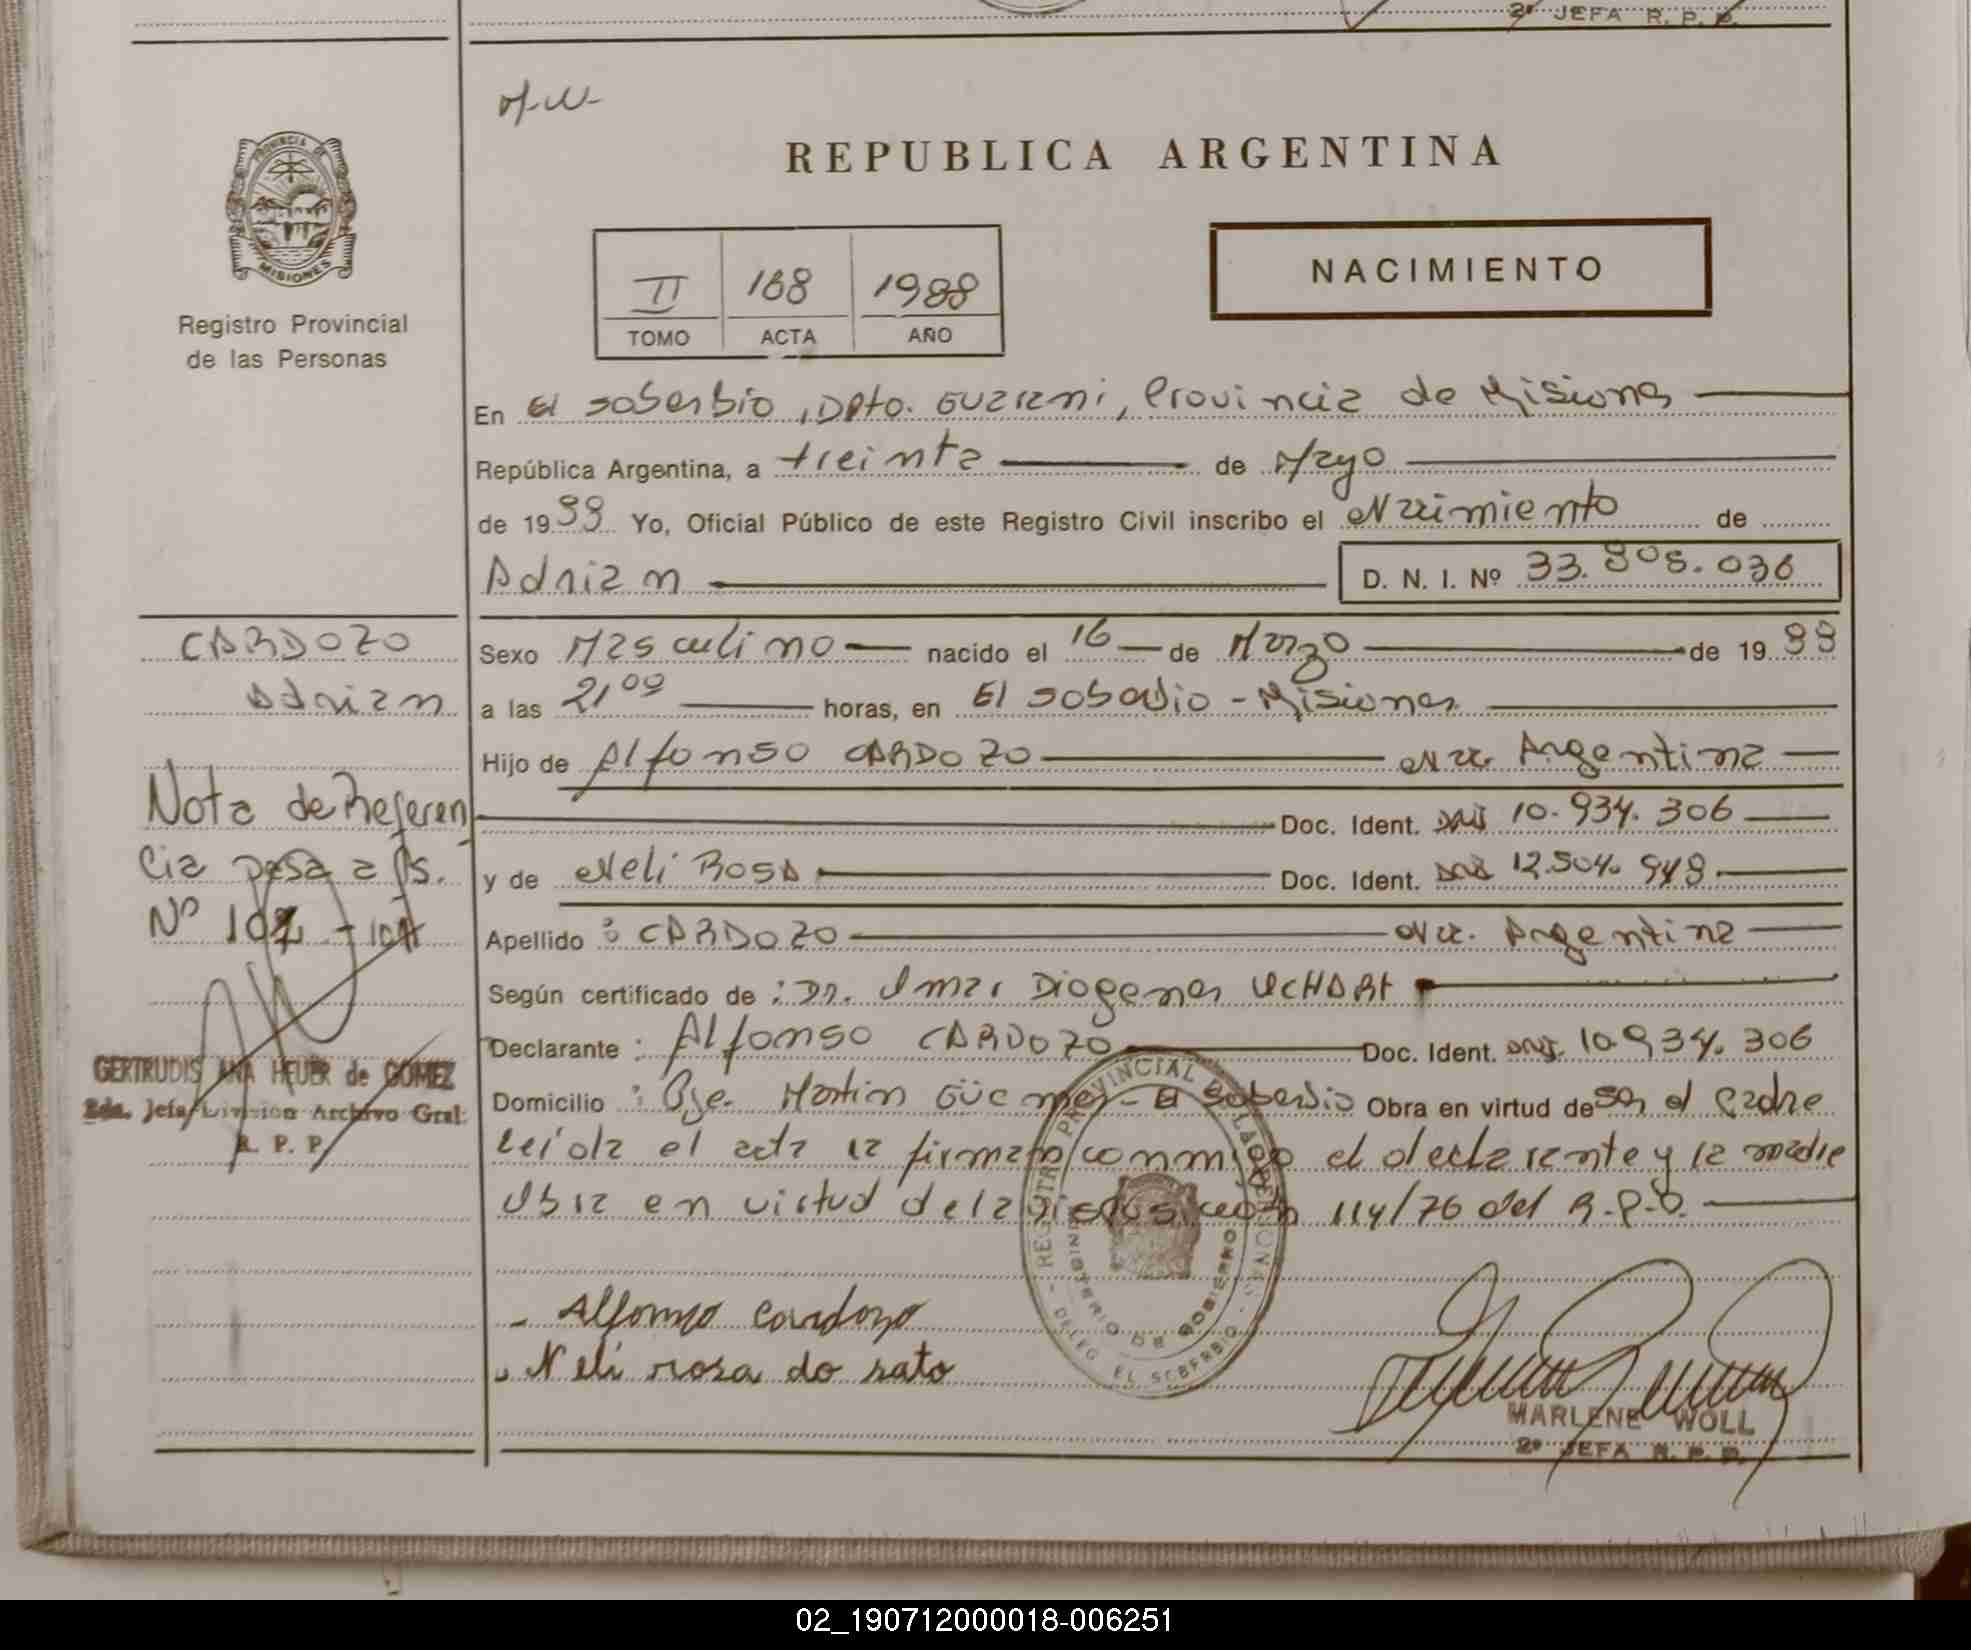 2º JEFA R. P. P.
REPUBLICA ARGENTINA
PROVINCIA DE
MISIONES
Registro Provincial
de las Personas
II 168 1988
TOMO ACTA AÑO
NACIMIENTO
En El Soberbio, Dpto. Guarani, Provincia de Misiones
República Argentina, a treinta de Mayo
de 1988 Yo, Oficial Público de este Registro Civil inscribo el Nacimiento de
Adrian D. N. I. Nº 33.808.036
CARDOZO
Adrian
Sexo Masculino nacido el 16 de Marzo de 1988
a las 21 00 horas, en El Soberbio - Misiones
Hijo de Alfonso CARDOZO Nac. Argentina
Doc. Ident. DNI 10.934.306
y de Neli ROSA Doc. Ident. DNI 12.504.948
Apellido : CARDOZO Nac. Argentina
Según certificado de : Dr. Omar Diogenes UCHART
Declarante : Alfonso CARDOZO Doc. Ident. DNI. 10.934.306
Domicilio : Pje. Martin Güemes - El Soberbio Obra en virtud de Ser el Padre
Leida el acta la firman conmigo el declarante y la madre
Obra en virtud de la Disposicion 114/76 del R.P.P.
Nota de Referen
cia pasa a fs.
Nº 102
GERTRUDIS ANA HEUER de GOMEZ
2da. Jefa División Archivo Gral.
R. P. P.
- REGISTRO PROVINCIAL DE LAS PERSONAS -
MINISTERIO DE GOBIERNO
DELEG. EL SOBERBIO
- Alfonso Cardozo
- Neli rosa do sato
MARLENE WOLL
2º JEFA R. P. P.
02_190712000018-006251